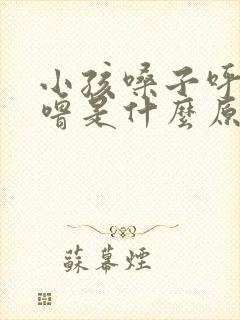 小孩嗓子呼
噜是什麼原
蘇幕煙